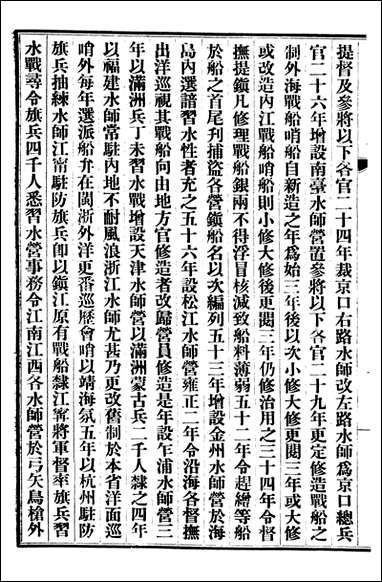 提督及參將以下各官二十四年裁京口右路水師改左路水師爲京口總兵
官二十六年增設南臺水師營置參將以下各官二十九年更定修造戰船之
制外海戰船哨船自新造之年爲始三年後以次小修大修更閱三年或大修
或改造內江戰船哨船則小修大修後更閱三年仍修治用之三十四年令督
撫提鎭凡修理戰船銀兩不得浮冒核減致船料薄弱五十二年令趕繒等船
於船之首尾刋捕盜各營鎭船名以次編列五十三年增設金州水師營於海
島內選諳習水性者充之五十六年設松江水師營雍正二年令沿海各督撫
出洋巡視其戰船向由地方官修造者改歸營員修造是年設乍浦水師營三
年以滿洲兵丁未習水戰增設天津水師營以滿洲蒙古兵二千人隸之四年
以福建水師常駐內地不耐風浪浙江水師尤甚乃更改舊制於本省洋面巡
哨外每年選派船弁在閩浙外洋更番巡歷會哨以靖海氛五年以杭州駐防
旗兵抽練水師江甯駐防旗兵卽以鎭江原有戰船隸江甯將軍督率旗兵習
水戰尋令旗兵四千人悉習水營事務令江南江西各水師營於弓矢鳥槍外